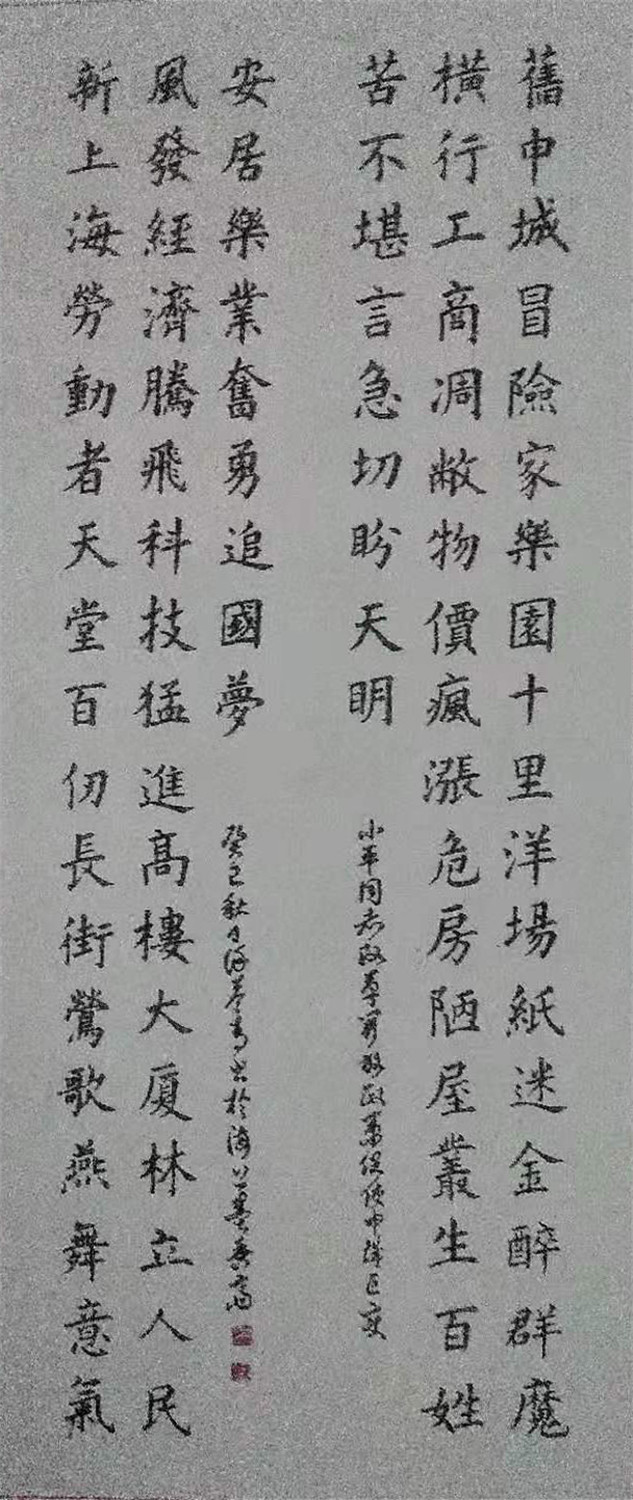 舊申城冒險家樂園十里洋場紙迷金醉群魔
橫行工商凋敝物價瘋漲危房陋屋叢生百姓
苦不堪言急切盼天明
小平同志改革開放政策促使申城巨變
新上海勞動者天堂百仞長街鶯歌燕舞意氣
風發經濟騰飛科技猛進髙樓大廈林立人民
安居樂業奮勇追國夢
癸巳秋月書於海上墨香齋